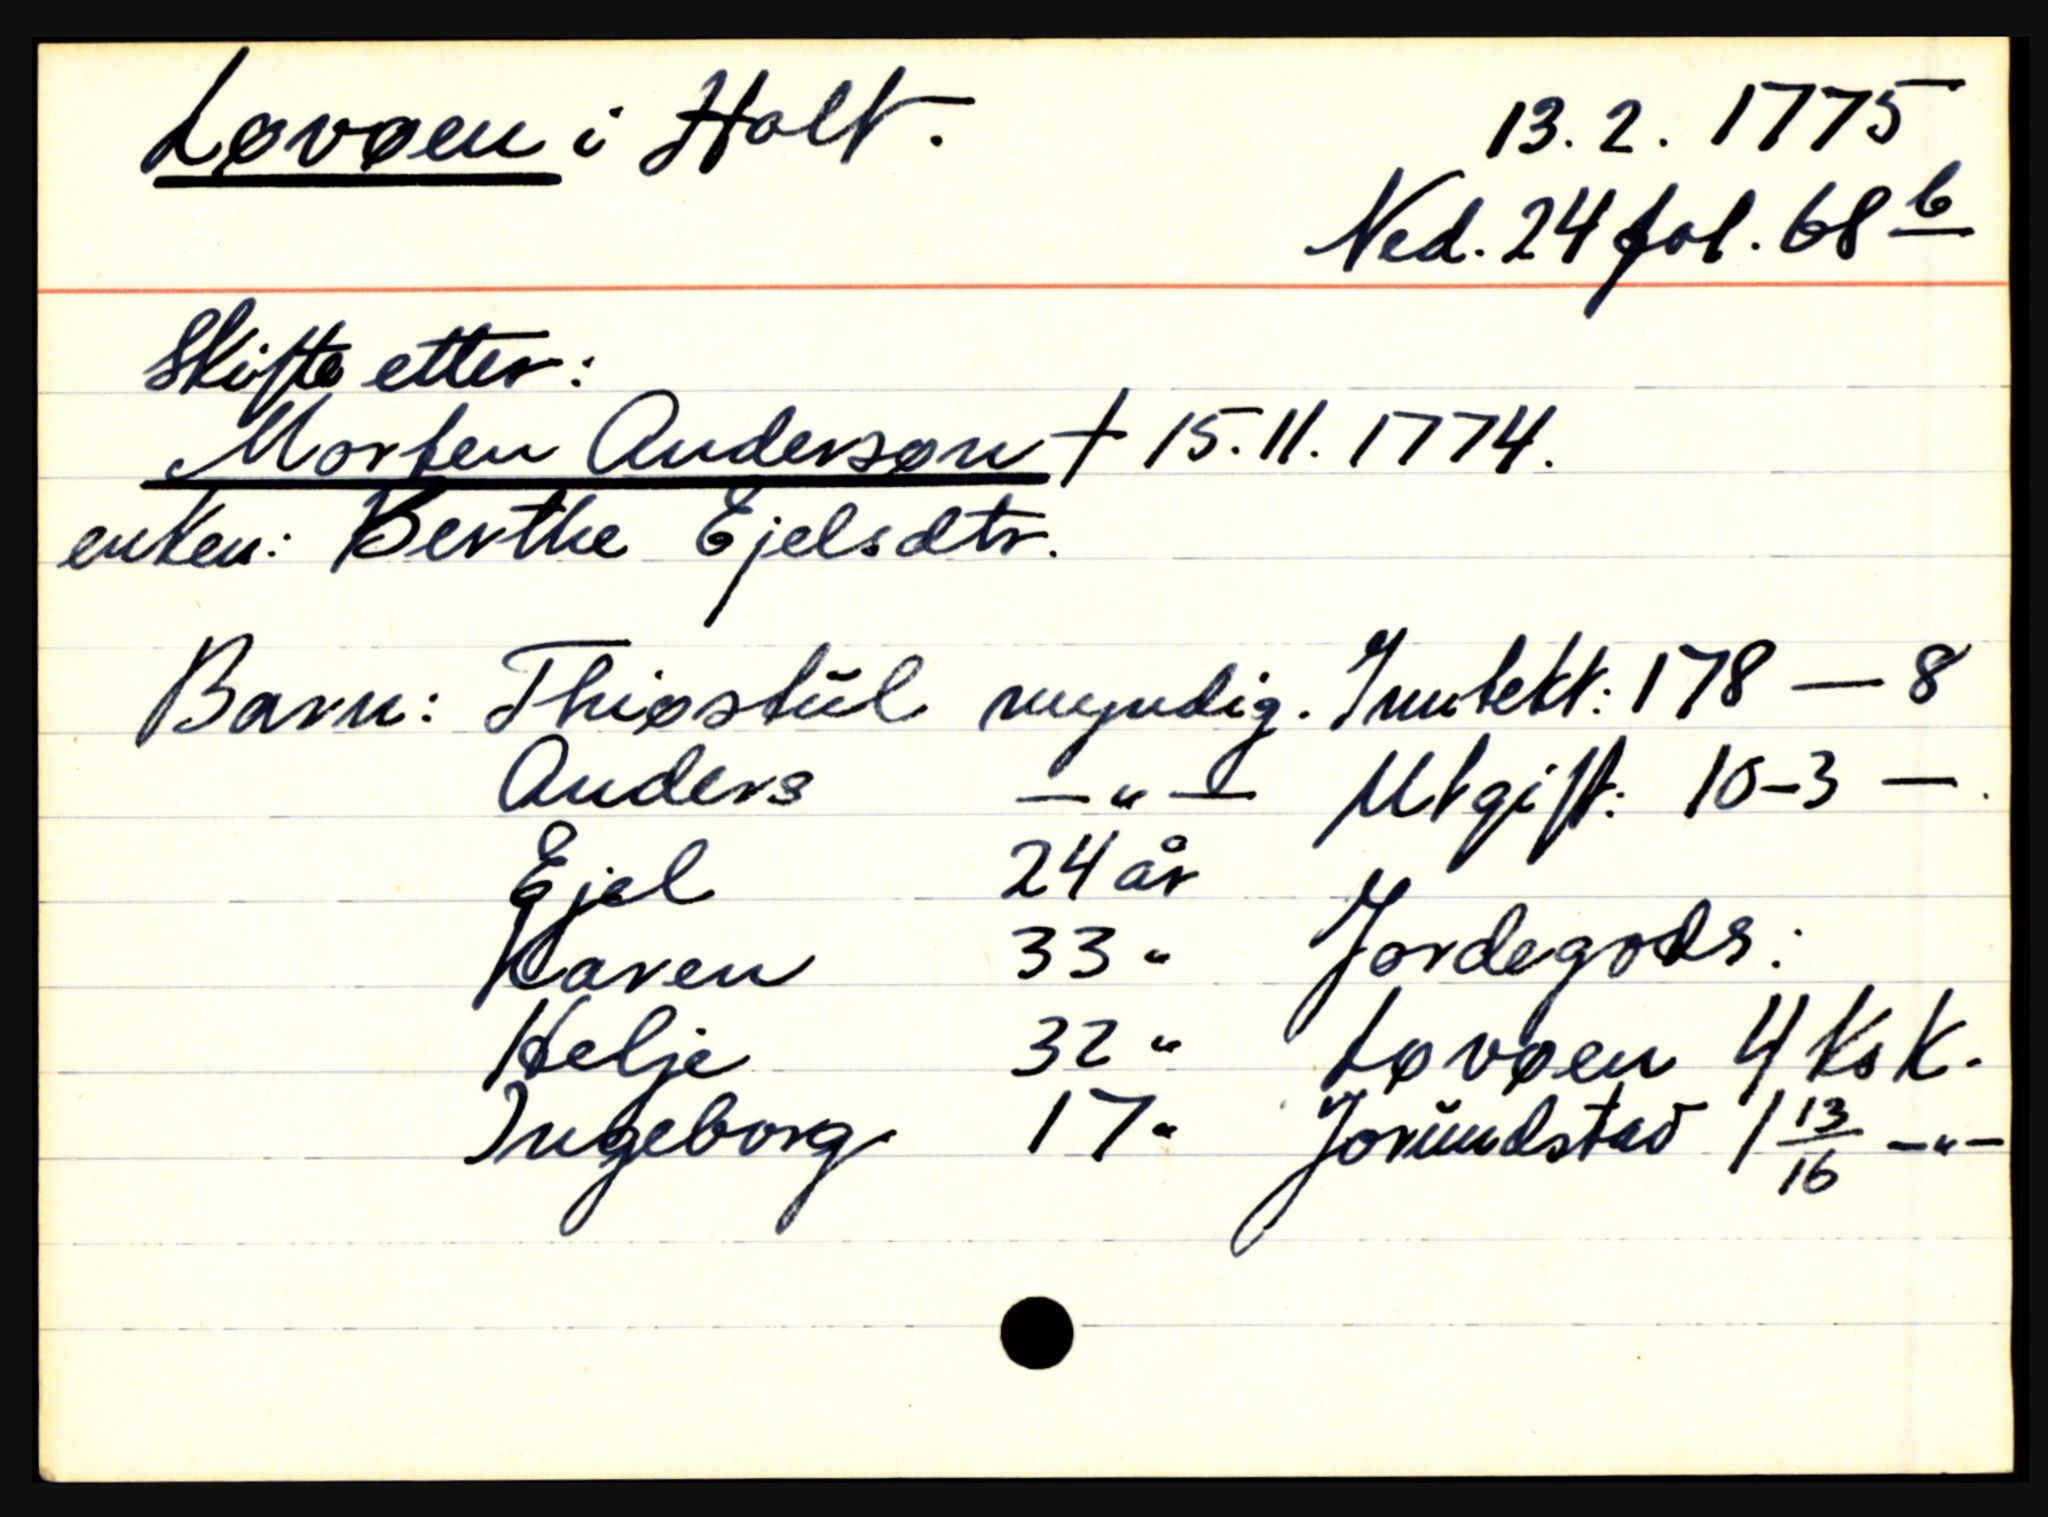 Løvøen i Holt. 13.2.1775
Ned. 24 fol. 68 b
Skifte etter:
Morten Andersøn † 15.11.1774.
enken: Berthe Ejelsdtr.
Barn: Thiøstül myndig. Inntekt: 178 — 8
Anders —"— Utgift: 10-3 —.
Ejel 24 år
Karen 33 " Jordegods:
Helje 32 " Løvøen 4 Ks K.
Ingeborg 17 " Jorŭndstad 1 13/16 —"—